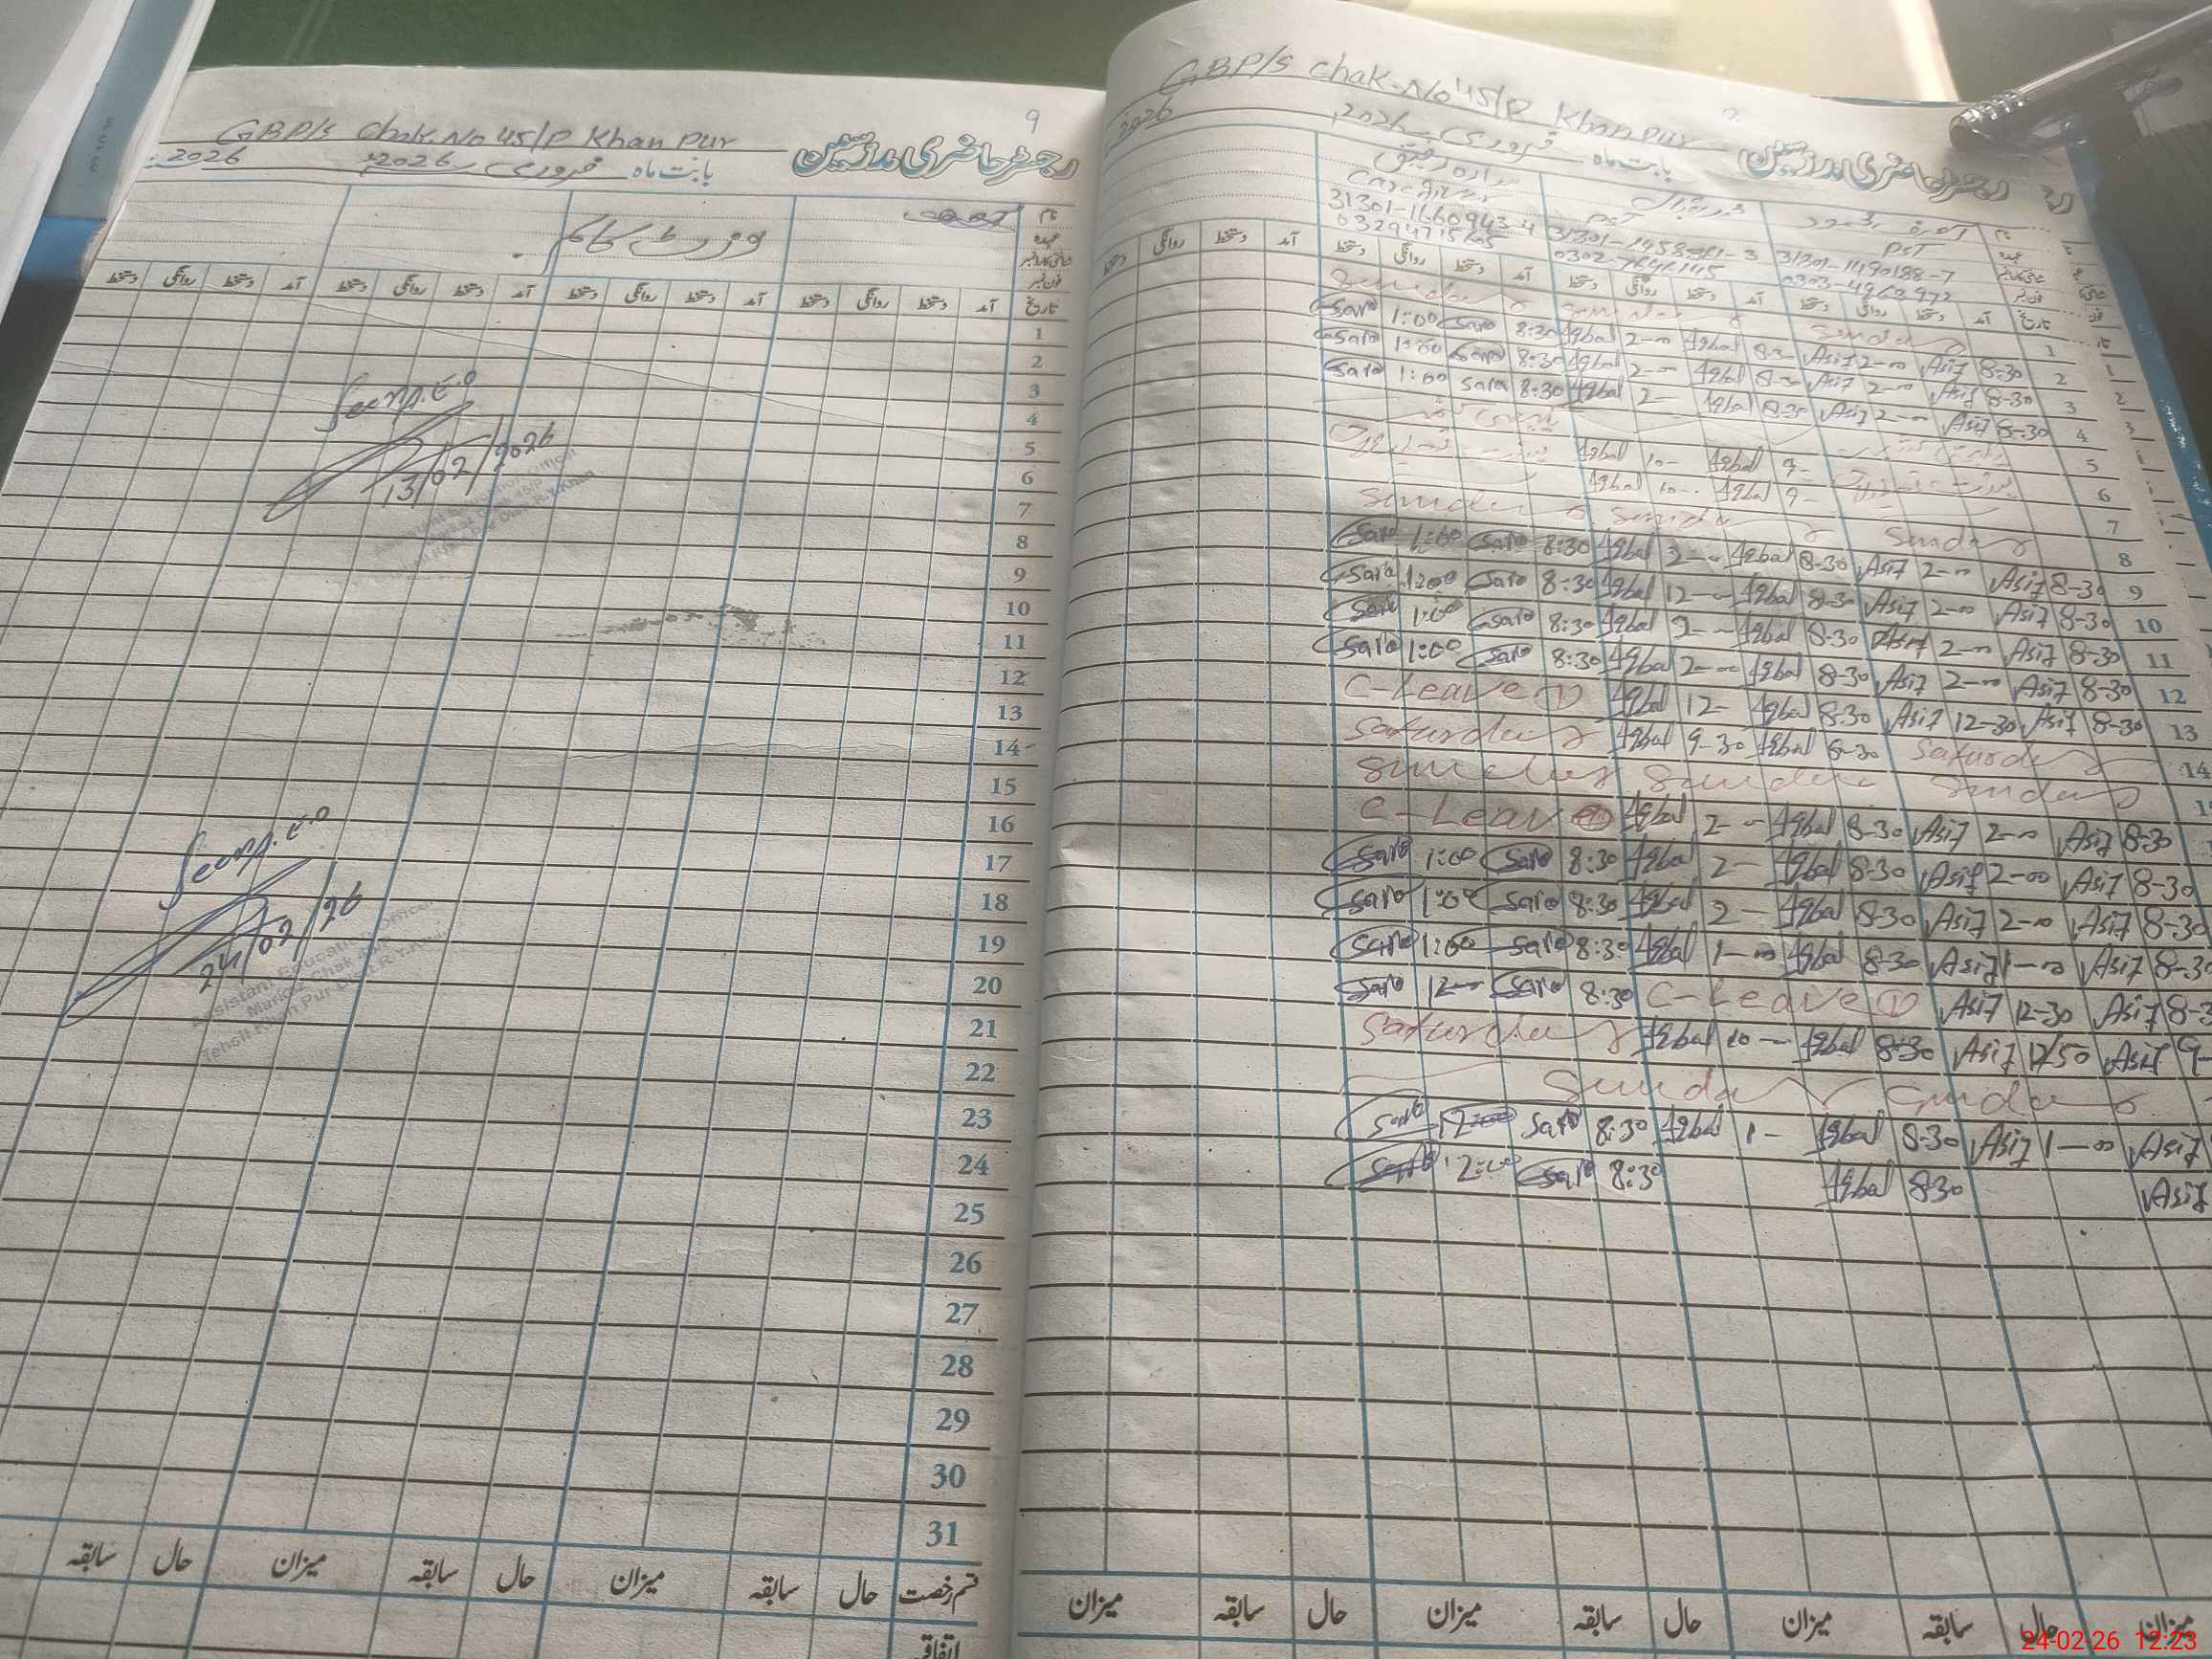 9
GBP/s Chak.No 45/P Khan Pur
رجسٹر حاضری مدرسین
بابت ماہ فروری 2026ء
2026
نام
عہدہ
شناختی کارڈ نمبر
فون نمبر
تاریخ آمد دستخط روانگی دستخط آمد دستخط روانگی دستخط آمد دستخط روانگی دستخط آمد دستخط روانگی دستخط
1
2
3
4
5
6
7
8
9
10
11
12
13
14
15
16
17
18
19
20
21
22
23
24
25
26
27
28
29
30
31
13/02/2026
24/02/26
Assistant Education Officer
Markaz Chak
Tehsil Khan Pur Distt R.Y.Khan
قسم رخصت حال سابقہ میزان حال سابقہ میزان حال سابقہ
اتفاقیہ
GBP/s Chak.No 45/P Khan pur
رجسٹر حاضری مدرسین
بابت ماہ فروری 2026ء
2026
PST
31301-1490188-7
0303-4963972
PST
سارہ رفیق
Care giver
31301-1660943-4
تاریخ آمد دستخط روانگی دستخط آمد دستخط روانگی دستخط آمد دستخط روانگی دستخط آمد دستخط روانگی دستخط
1 Sunday
2 Sara 1:00 Sara 8:30 Iqbal 2-00 Iqbal 8-30 Asif 2-00 Asif 8-30
3 Sara 1:00 Sara 8:30 Iqbal 2-00 Iqbal 8-30 Asif 2-00 Asif 8-30
4 Sara 1:00 Sara 8:30 Iqbal 2- Iqbal 8-30 Asif 2-00 Asif 8-30
5 Iqbal 10- Iqbal 9-
6 Iqbal 10- Iqbal 9-
7
Sunday Sunday Sunday
8 Sara 1:00 Sara 8:30 Iqbal Iqbal 8-30 Asif 2-00 Asif 8-30
9 Sara 1:00 Sara 8:30 Iqbal Iqbal 8-30 Asif 2-00 Asif 8-30
10 Sara 1:00 Sara 8:30 Iqbal Iqbal 8-30 Asif 2-00 Asif 8-30
11 Sara 1:00 Sara 8:30 Iqbal 2-00 Iqbal 8-30 Asif 2-00 Asif 8-30
12 C-Leave ① Iqbal 12- Iqbal 8-30 Asif 12-30 Asif 8-30
13 Saturday Iqbal 9-30 Iqbal 8-30 Saturday
14 Sunday Sunday Sunday
C-Leave Iqbal 2- Iqbal 8-30 Asif 2-00 Asif 8-30
Sara 1:00 Sara 8:30 Iqbal 2- Iqbal 8-30 Asif 2-00 Asif 8-30
Sara 1:00 Sara 8:30 Iqbal 2- Iqbal 8-30 Asif 2-00 Asif 8-30
Sara 1:00 Sara 8:30 Iqbal 1-00 Iqbal 8-30 Asif 1-00 Asif 8-30
Sara 12-00 Sara 8:30 C-Leave ① Asif 12-30 Asif 8-3
Saturday Iqbal 10- Iqbal 8-30 Asif 12/50 Asif 9-
Sunday Sunday
Sara 12:00 Sara 8:30 Iqbal 1- Iqbal 8-30 Asif 1-00 Asif
Sara 12:00 Sara 8:30 Iqbal 8-30 Asif
میزان حال سابقہ میزان حال سابقہ میزان حال سابقہ میزان
24-02-26 12:23